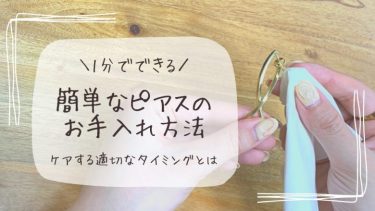 ＼1分でできる／
簡単なピアスの
お手入れ方法
ケアする適切なタイミングとは